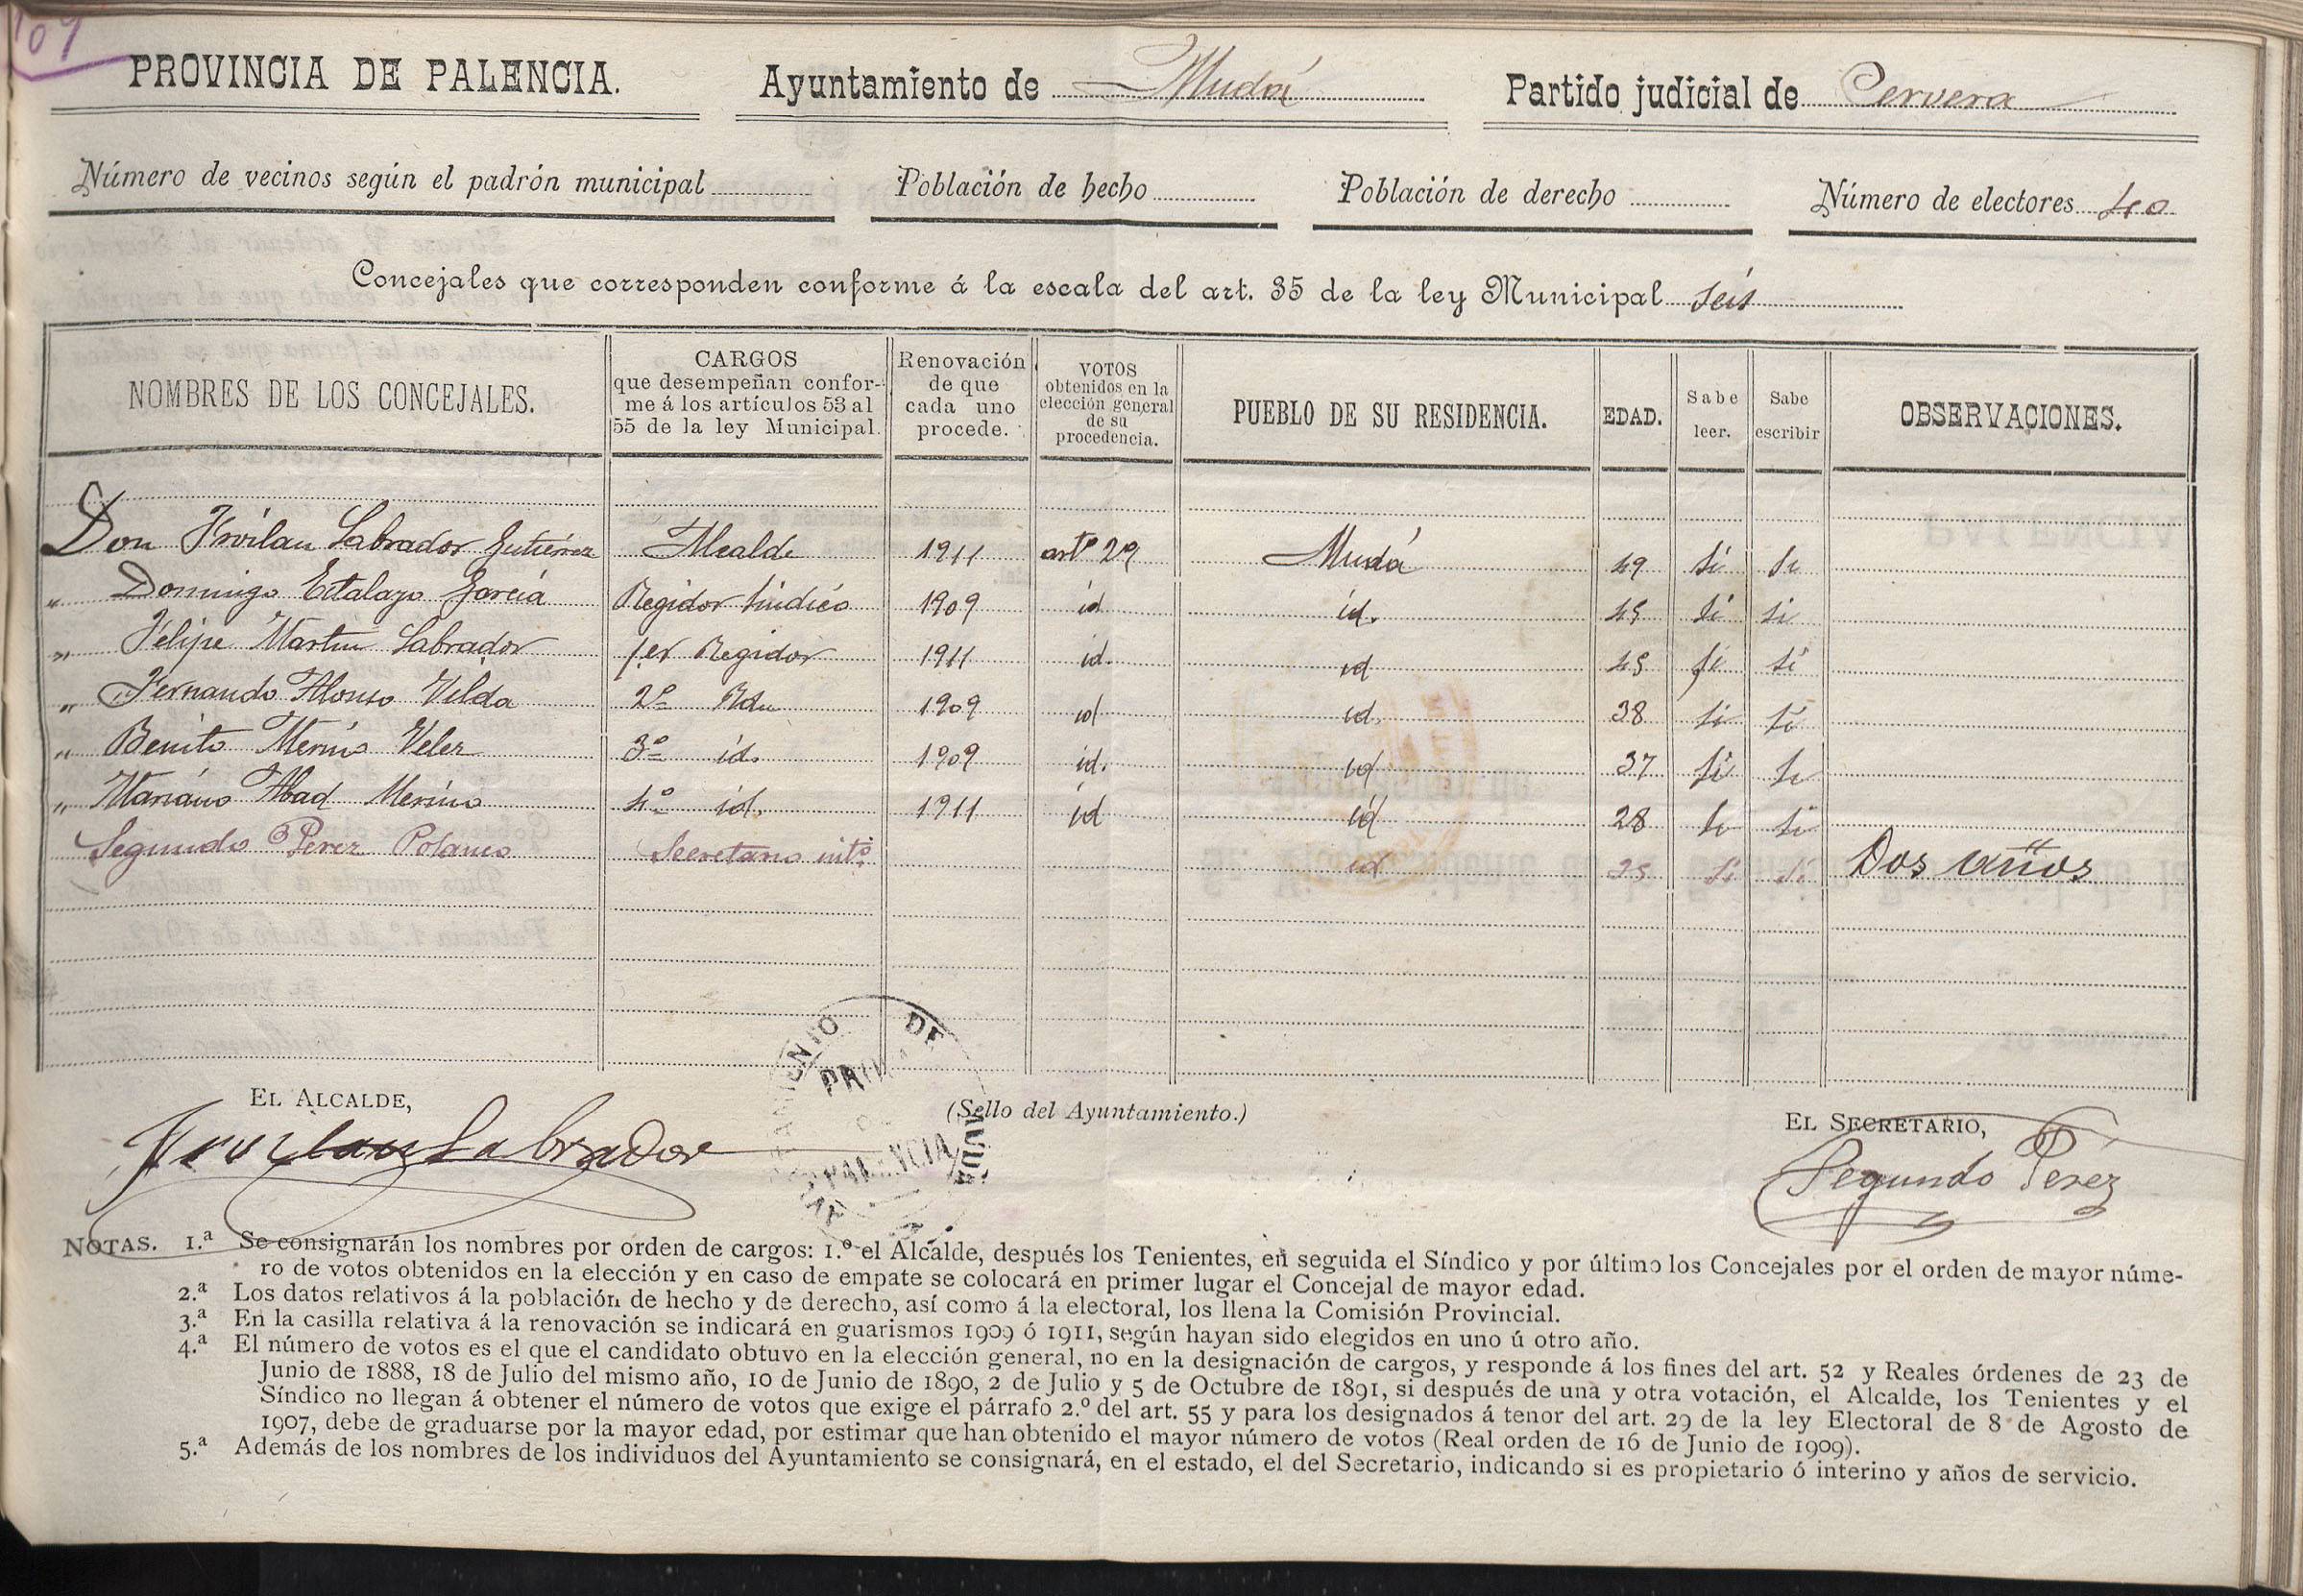 109
PROVINCIA DE PALENCIA. Ayuntamiento de Mudá Partido judicial de Cervera
Número de vecinos según el padrón municipal Población de hecho Población de derecho Número de electores 40
Concejales que corresponden conforme á la escala del art. 35 de la ley Municipal seis
NOMBRES DE LOS CONCEJALES.
CARGOS
que desempeñan confor-
me á los artículos 53 al
55 de la ley Municipal.
Renovación
de que
cada uno
procede.
VOTOS
obtenidos en la
elección general
de su
procedencia.
PUEBLO DE SU RESIDENCIA.
EDAD.
Sabe
leer.
Sabe
escribir
OBSERVACIONES.
Don Froilan Labrador Gutierrez Alcalde 1911 artº 29 Mudá 49 si si
" Domingo Estalayo García Regidor Sindico 1909 id id. 45 si si
" Felipe Martin Labrador 1er Regidor 1911 id. id 45 si si
" Fernando Alonso Velda 2º 1909 id id. 38 si si
" Benito Merino Velez 3º id. 1909 id. id 37 si si
" Mariano Abad Merino 4º id. 1911 id id 28 si si
Segundo Perez Polanco Secretario intº id 25 si si Dos años
EL ALCALDE,
Froilan Labrador
(Sello del Ayuntamiento.)
DE MUDÁ
PALENCIA
EL SECRETARIO,
Segundo Pérez
NOTAS. 1.ª Se consignarán los nombres por orden de cargos: 1.º el Alcalde, después los Tenientes, en seguida el Síndico y por último los Concejales por el orden de mayor núme-
ro de votos obtenidos en la elección y en caso de empate se colocará en primer lugar el Concejal de mayor edad.
2.ª Los datos relativos á la población de hecho y de derecho, así como á la electoral, los llena la Comisión Provincial.
3.ª En la casilla relativa á la renovación se indicará en guarismos 1909 ó 1911, según hayan sido elegidos en uno ú otro año.
4.ª El número de votos es el que el candidato obtuvo en la elección general, no en la designación de cargos, y responde á los fines del art. 52 y Reales órdenes de 23 de
Junio de 1888, 18 de Julio del mismo año, 10 de Junio de 1890, 2 de Julio y 5 de Octubre de 1891, si después de una y otra votación, el Alcalde, los Tenientes y el
Síndico no llegan á obtener el número de votos que exige el párrafo 2.º del art. 55 y para los designados á tenor del art. 29 de la ley Electoral de 8 de Agosto de
1907, debe de graduarse por la mayor edad, por estimar que han obtenido el mayor número de votos (Real orden de 16 de Junio de 1909).
5.ª Además de los nombres de los individuos del Ayuntamiento se consignará, en el estado, el del Secretario, indicando si es propietario ó interino y años de servicio.